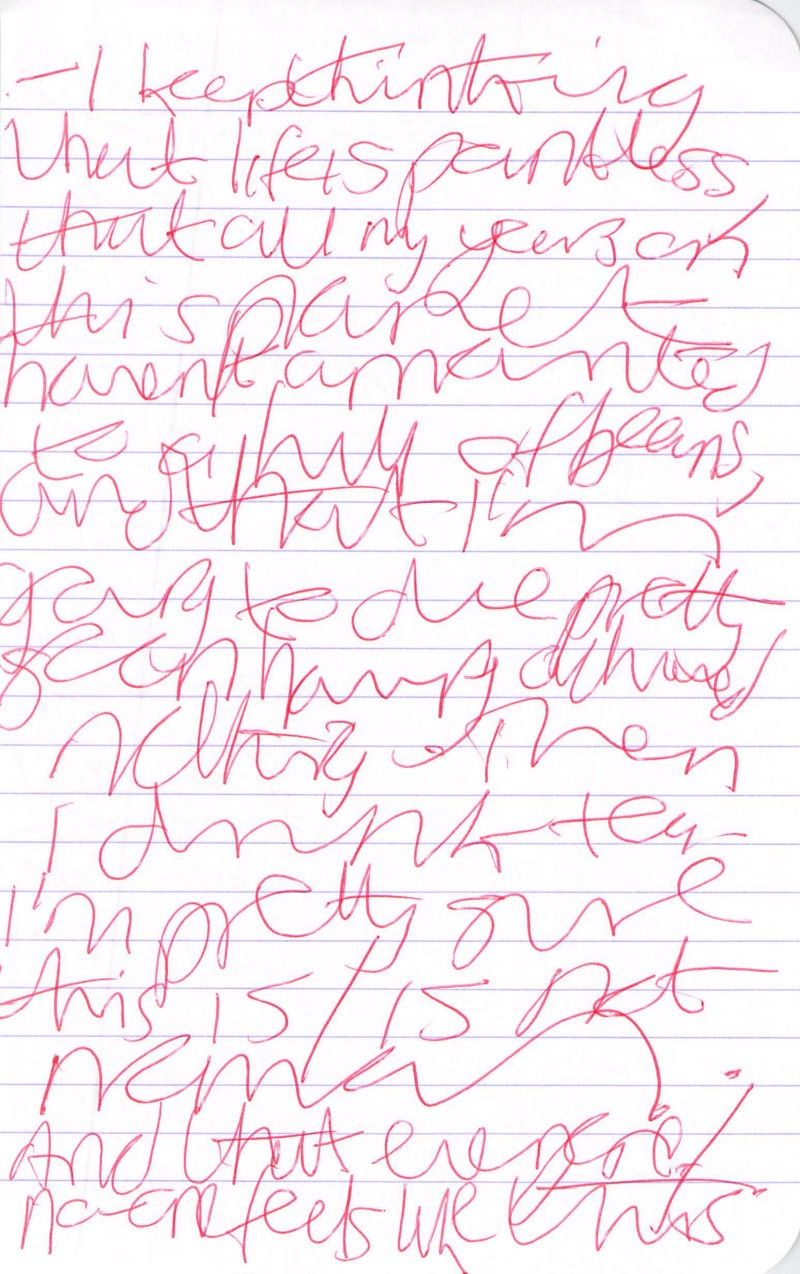 - I keep thinking
that life is pointless
that all my years on
this planet
haven't amounted
to a hill of beans,
and that I'm
going to die pretty
soon having achieved
nothing. Then
I drink tea
I'm pretty sure
this is / is not
normal.
And that everyone /
no-one feels like this